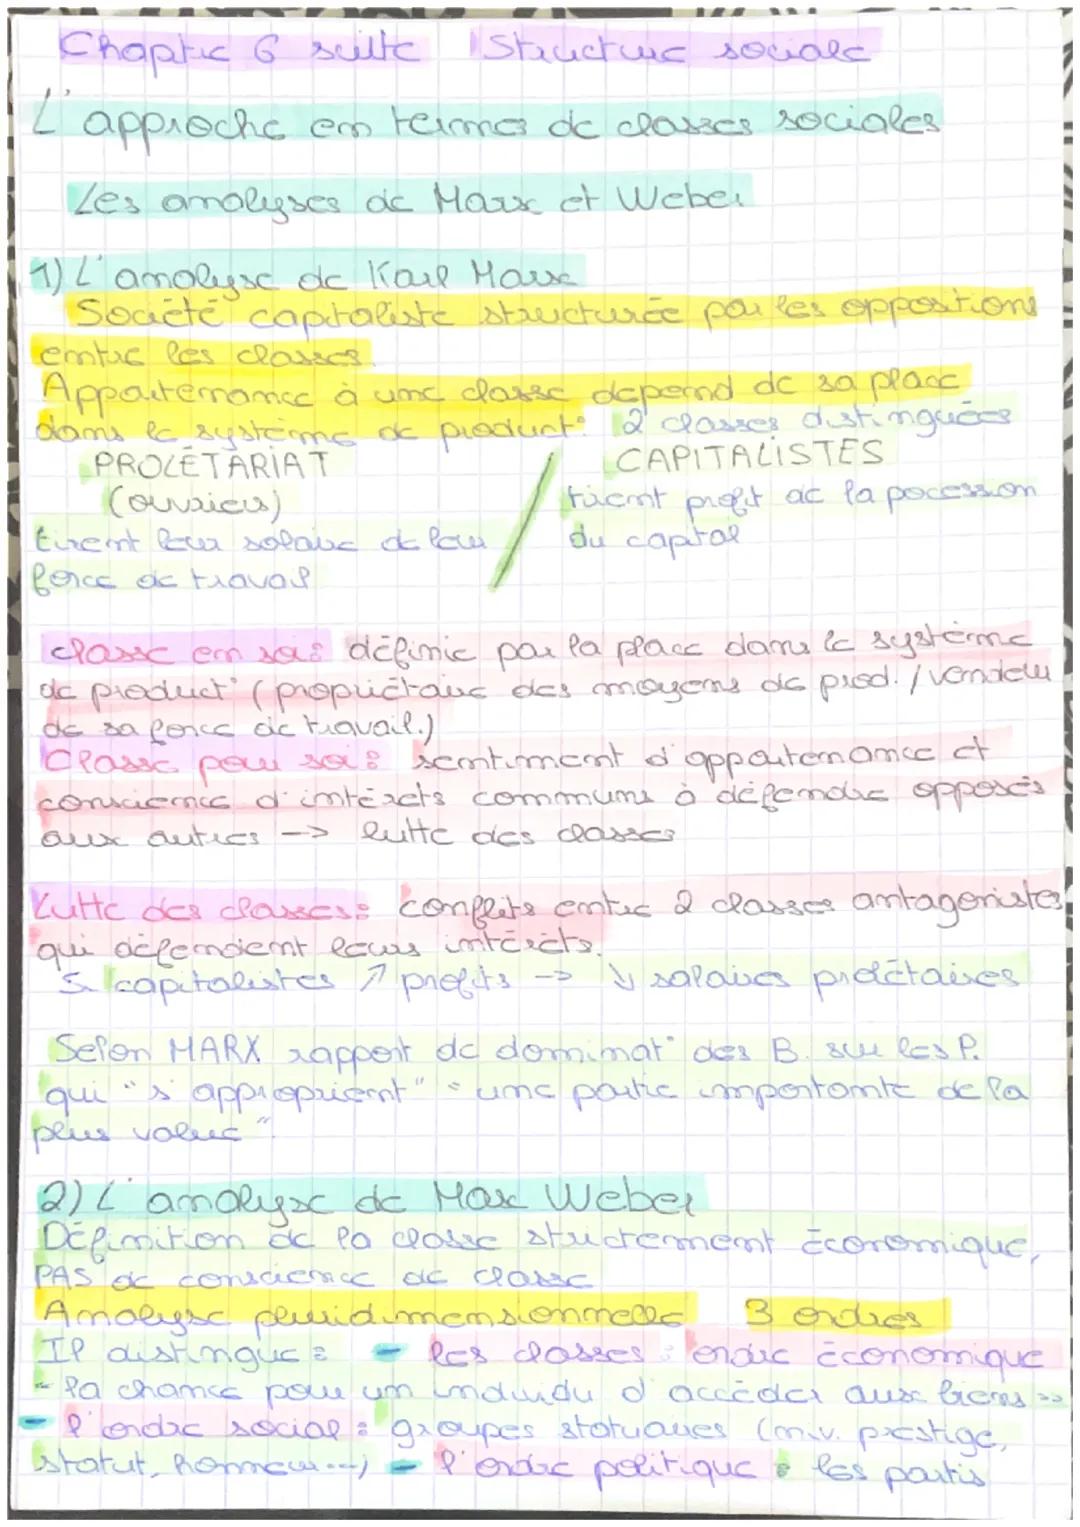 Chapitre 6 suite Structure sociale
L'approche en termes de classes sociales
Les analyses de Marx et Weber
1) L'analyse de Karl Marx
Société capitaliste structurée par les oppositions
entre les classes.
Appartenance à une classe dépend de sa place
dans le système de product° 2 classes distinguées
PROLÉTARIAT / CAPITALISTES
(ouvriers) tirent profit de la pocession
tirent leur salaire de leur du capital
force de travail
classe en soi : définie par la place dans le système
de product° (propriétaire des moyens de prod. / vendeur
de sa force de travail.)
Classe pour soi : sentiment d'appartenance et
conscience d'intérêts communs à défendre opposés
aux autres -> lutte des classes
Lutte des classes : conflits entre 2 classes antagonistes
qui défendent leurs intérêts.
Si capitalistes ↗ profits -> ↓ salaires prolétaires
Selon MARX rapport de dominat° des B. sur les P.
qui "s'approprient" " une partie importante de la
plus value ".
2) L'analyse de Max Weber
Définition de la classe strictement Économique,
PAS de conscience de classe
Analyse pluridimensionnelle 3 ordres
Il distingue : - les classes : ordre Économique
"la chance pour un individu d'accéder aux biens >>
- l'ordre social : groupes statuaires (niv. prestige,
statut, honneur...) - l'ordre politique : les partis